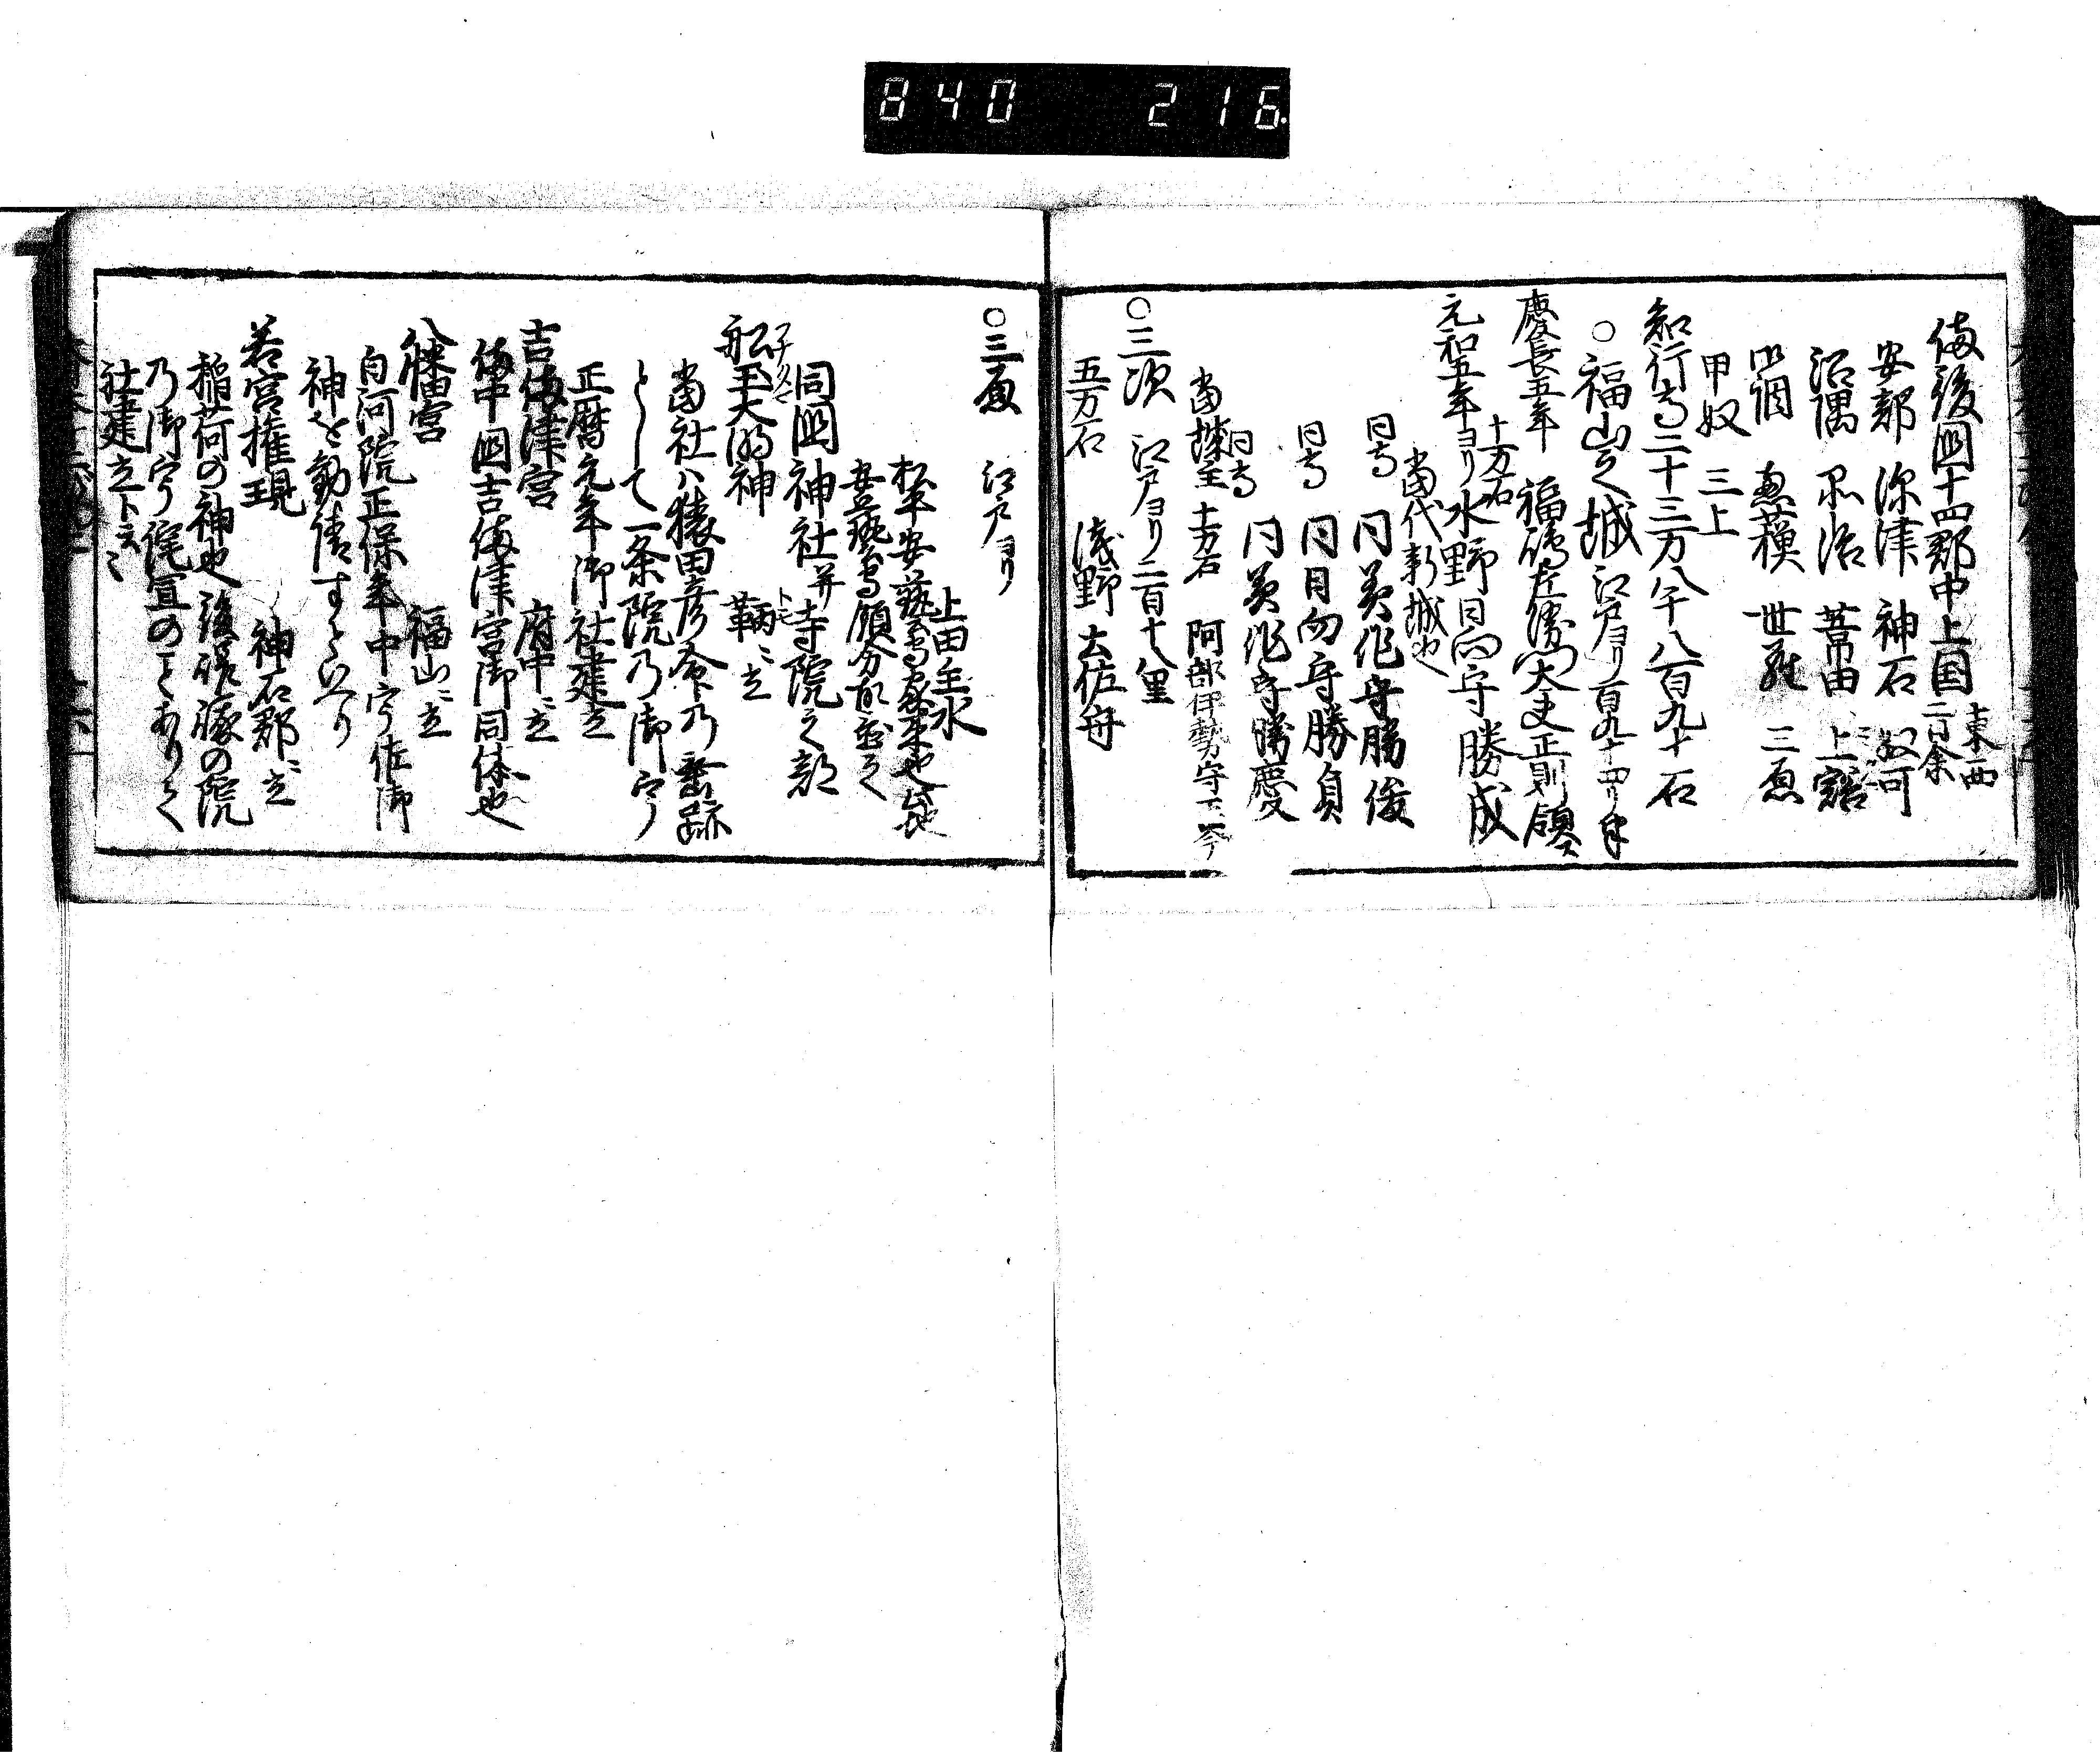 840 216
備後國十四郡中上国 東西二日余
安部 深津 神石 奴可
沼隅 品治 葦田 上 三谿
御調 惠蘓 世羅 三原
甲奴 三上
知行高二十三万八千八百九十石
○福山之城 江戸ヨリ百九十四り半
慶長五年 福嶋左衛門大夫正則領
十万石
元和五年ヨリ水野日向守勝成
当代新城也
同高 同美作守勝俊
同高 同日向守勝貞
同高 同美作守勝慶
当城主 十万石 阿部伊勢守 于今
○三次 江戸ヨリ二百十八里
五万石 浅野土佐守
○三原 江戸ヨリ
上田主水
松平安藝守家来也此地
安藝守領分故書之
同國神社并寺院之部
舩玉大明神 鞆ニ立
当社ハ猿田彦命乃垂跡
として一条院乃御宇
正暦元年御社建立
吉備津宮 府中ニ立
備中國吉備津宮御同体也
八幡宮 福山ニ立
白河院正保年中宇佐御
神を勧請すといへり
若宮權現 神石郡ニ立
稲荷の神也後嵯峨の院
乃御宇託宣のことありて
社建立ト云々